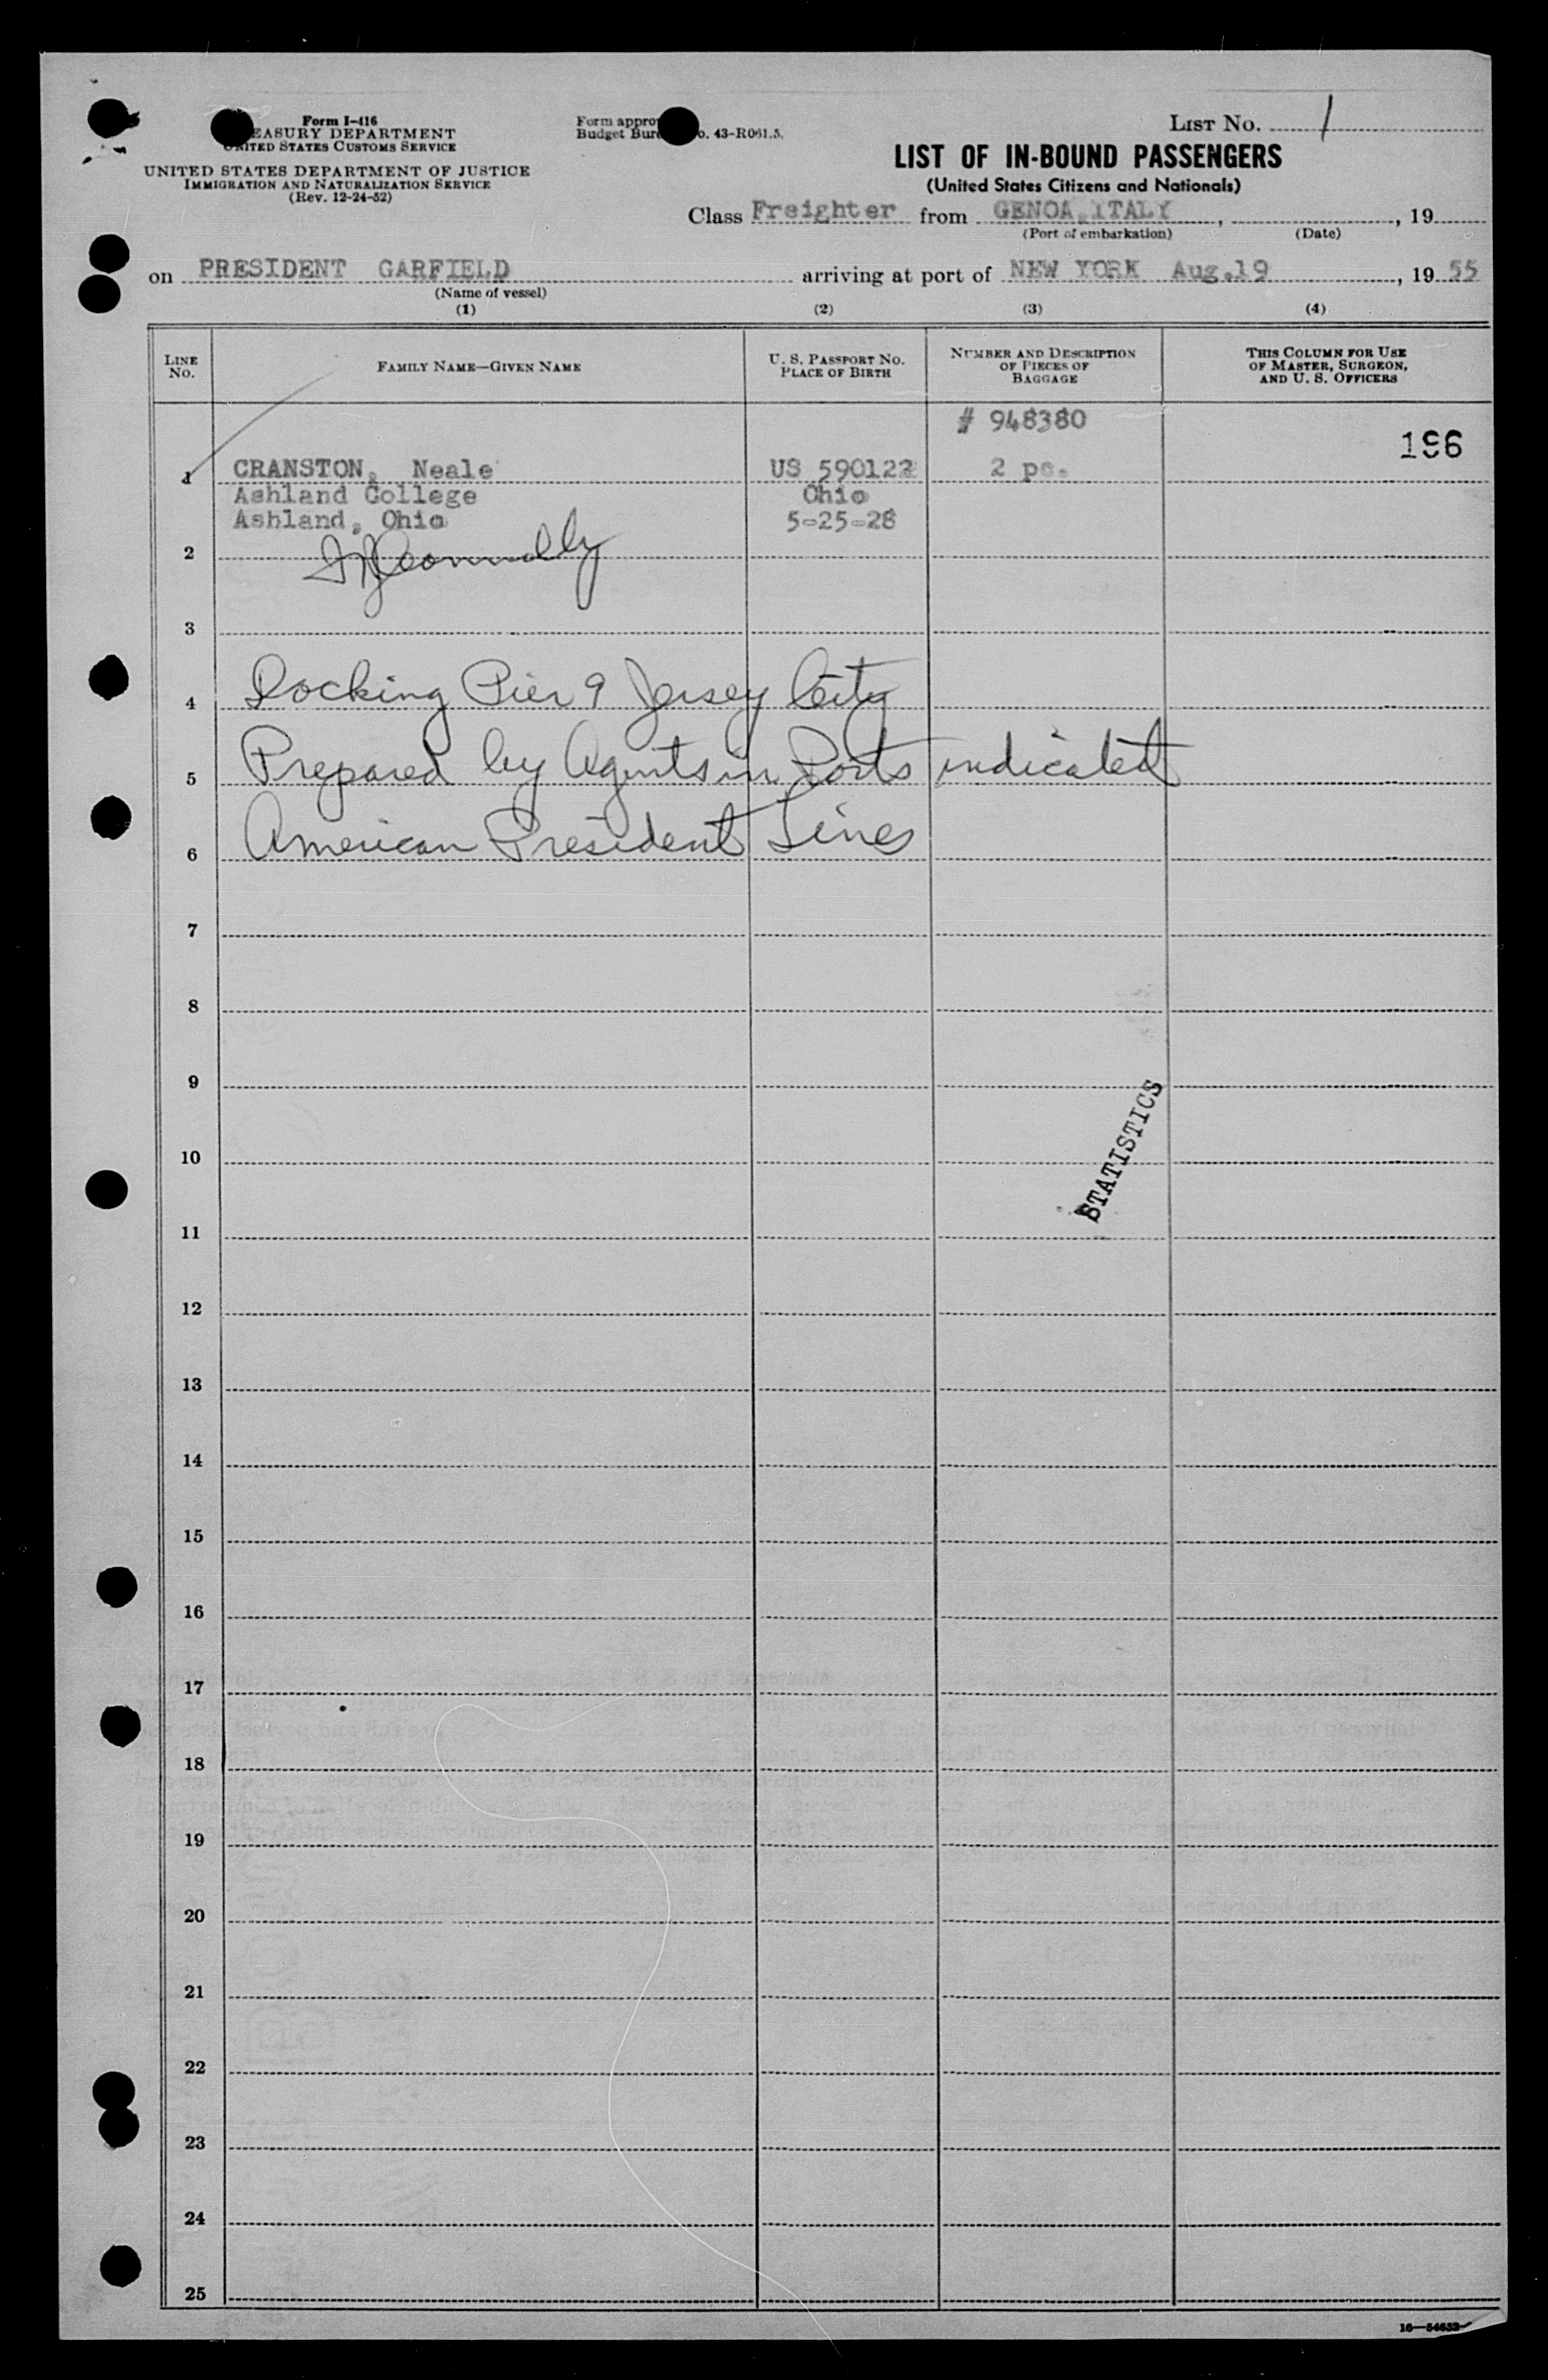 Form I-416
TREASURY DEPARTMENT
UNITED STATES CUSTOMS SERVICE
UNITED STATES DEPARTMENT OF JUSTICE
IMMIGRATION AND NATURALIZATION SERVICE
(Rev. 12-24-52)
Form appro
Budget Bure o. 43-R061.5.
LIST NO. 1
LIST OF IN-BOUND PASSENGERS
(United States Citizens and Nationals)
Class Freighter from GENOA, ITALY, , 19
(Port of embarkation) (Date)
on PRESIDENT GARFIELD arriving at port of NEW YORK Aug.19, 1955
(Name of vessel)
(1) (2) (3) (4)
LINE NO. FAMILY NAME—GIVEN NAME U. S. PASSPORT NO. PLACE OF BIRTH NUMBER AND DESCRIPTION OF PIECES OF BAGGAGE THIS COLUMN FOR USE OF MASTER, SURGEON, AND U. S. OFFICERS
# 948380
196
1 CRANSTON, Neale US 590122 2 pc.
Ashland College Ohio
Ashland, Ohio 5-25-28
2 Connolly
3
4 Docking Pier 9 Jersey City
5 Prepared by Agents in Ports indicated
6 American President Lines
7
8
9
STATISTICS
10
11
12
13
14
15
16
17
18
19
20
21
22
23
24
25